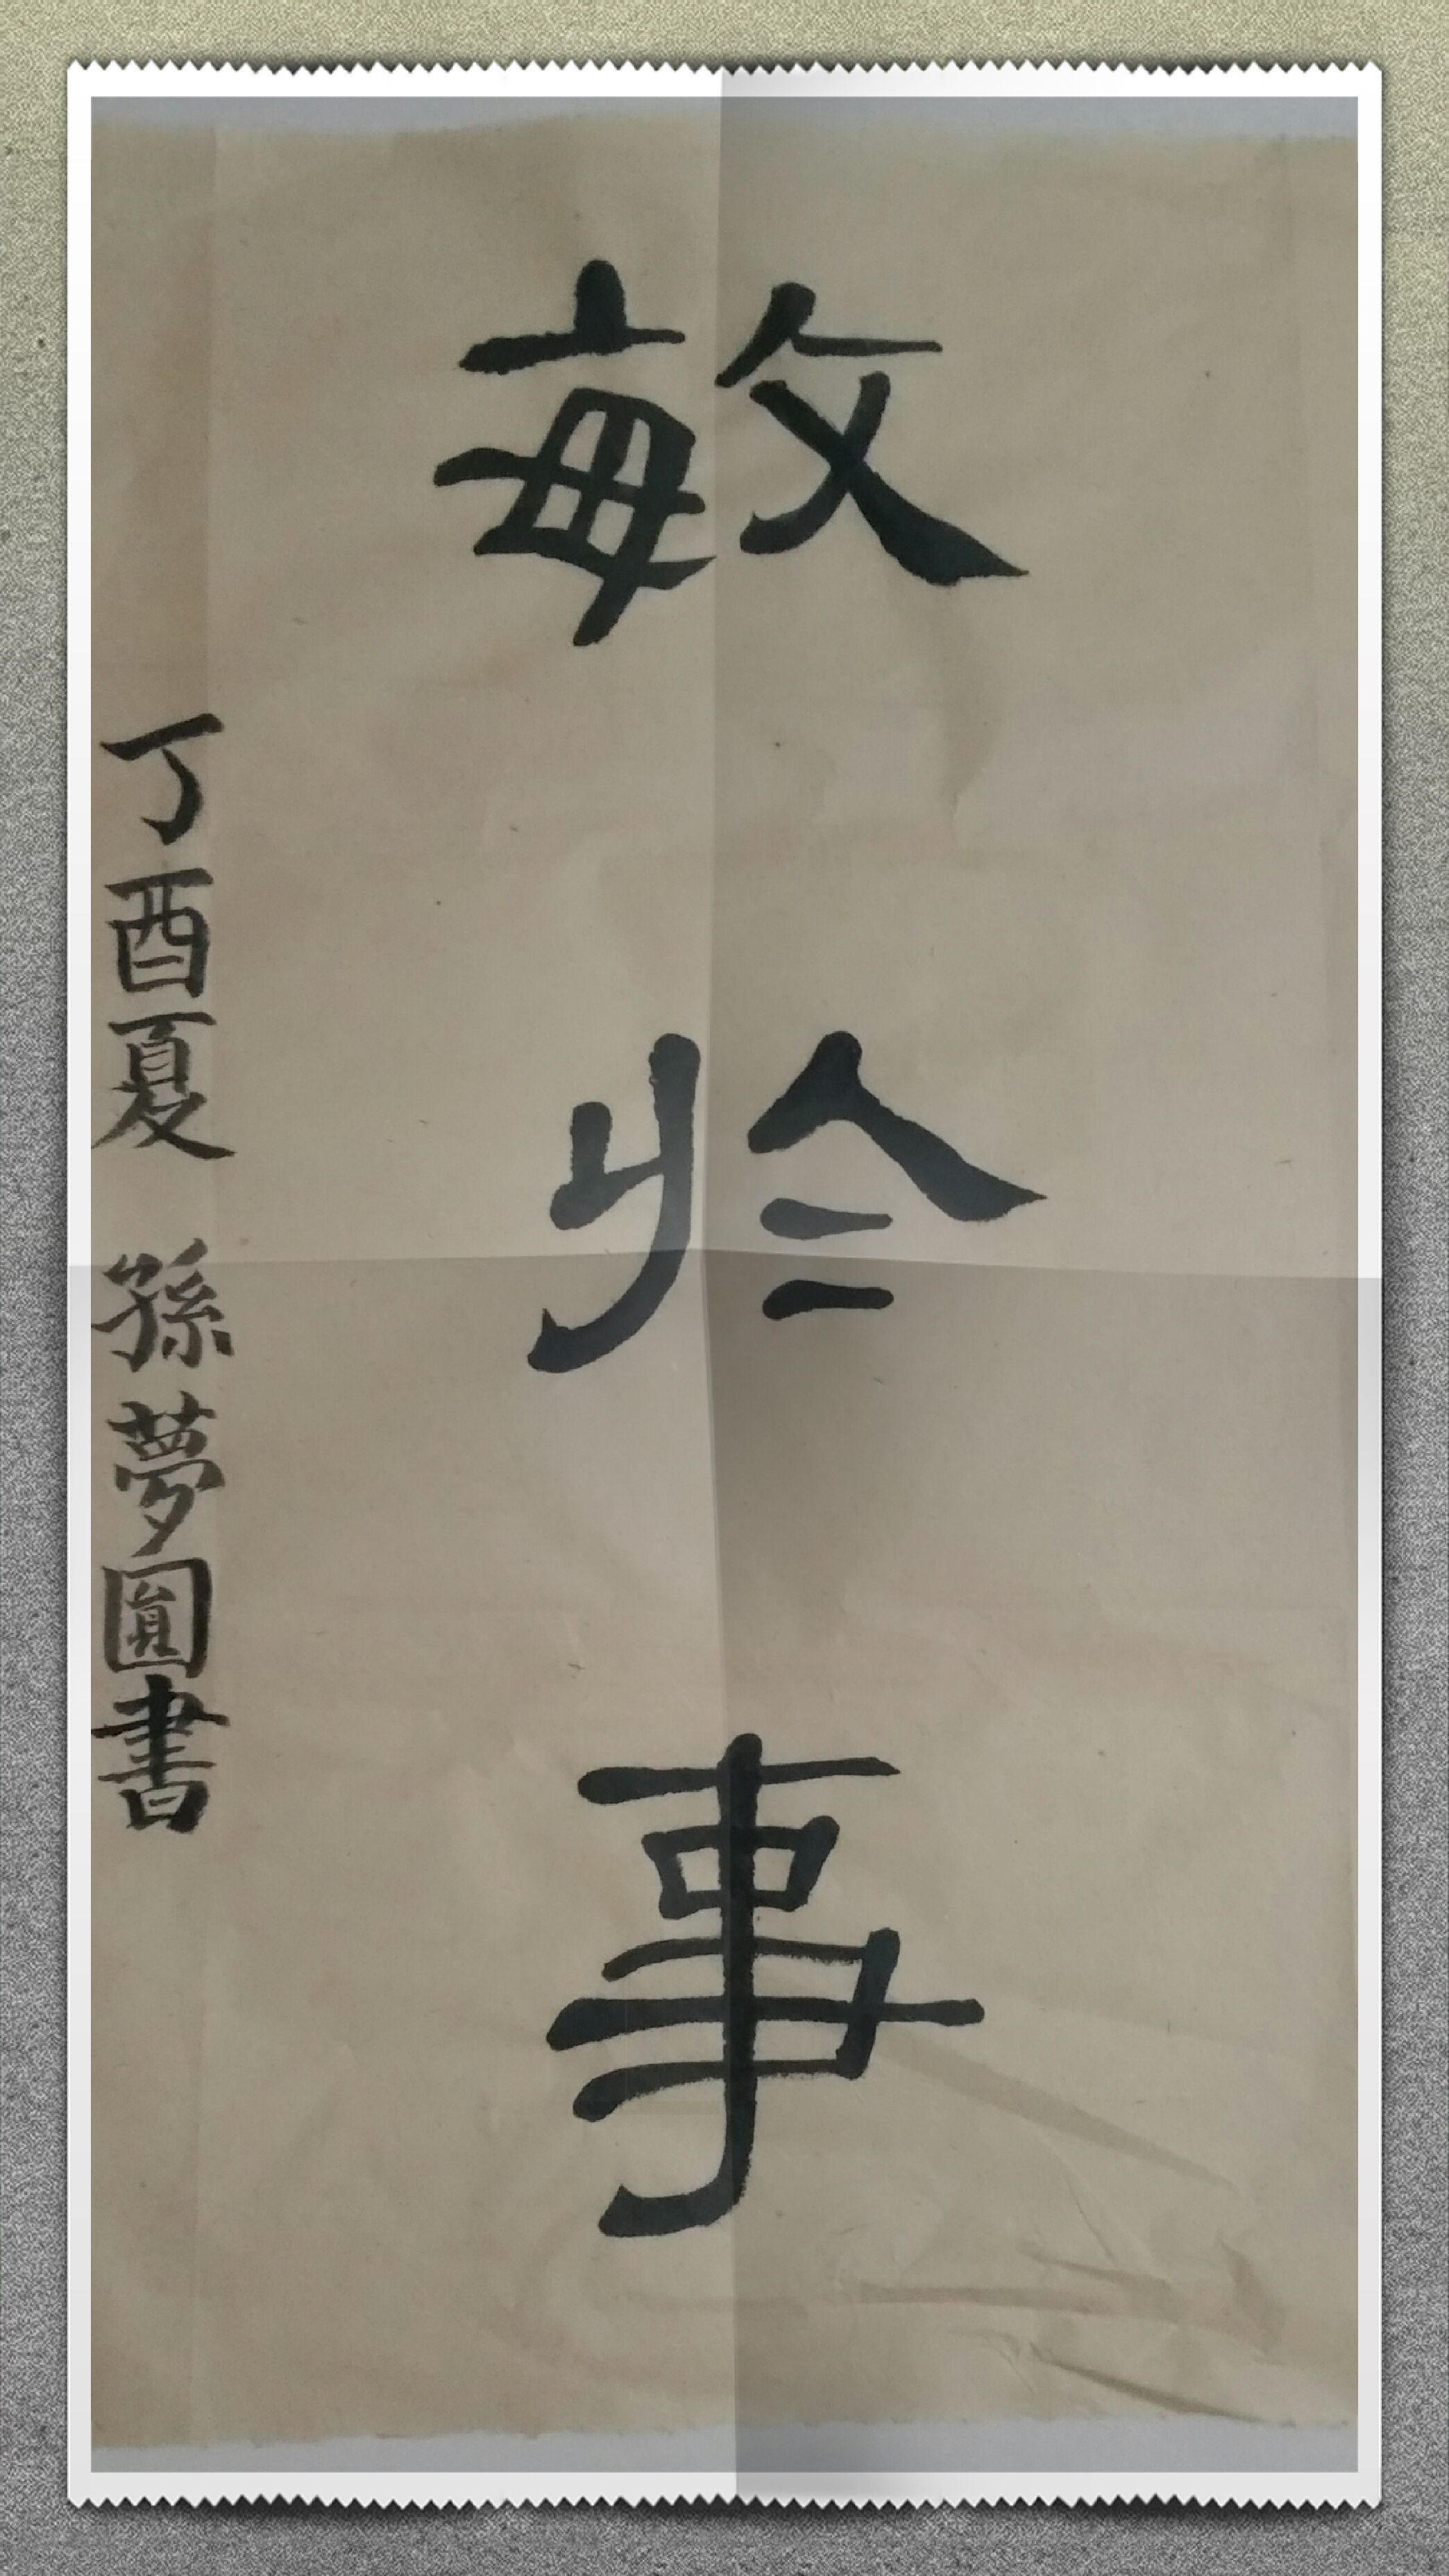 敏於事
丁酉夏 孫夢圓書